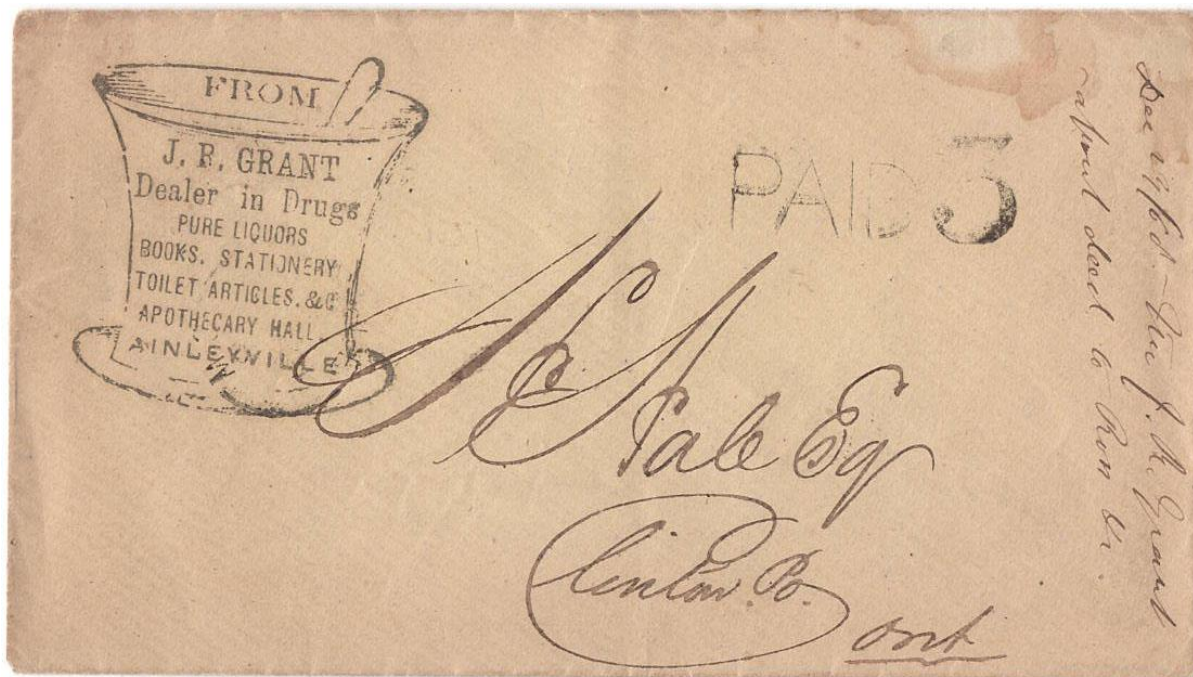 FROM
J. R. GRANT
Dealer in Drugs
PURE LIQUORS
BOOKS, STATIONERY
TOILET ARTICLES, &C
APOTHECARY HALL
AINLEYVILLE
PAID 3
Hale Esq
Clinton P.O.
Ont
J. R. Grant
about deed to